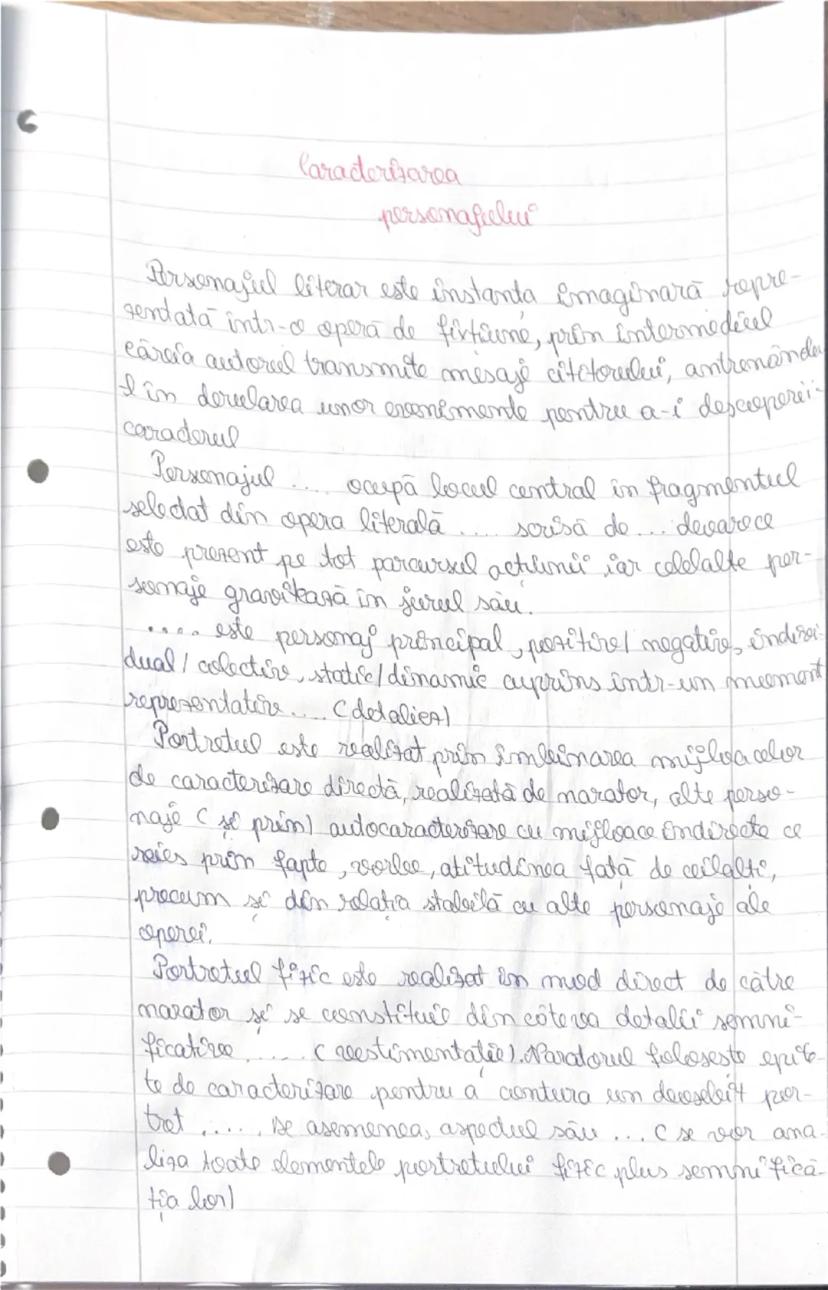 Caracterizarea
personajului
Personajul literar este instanța imaginară repre-
zentată într-o operă de ficțiune, prin intermediul
căreia autorul transmite mesaje cititorului, antrenându-
l în derularea unor evenimente pentru a-i descoperi
caracterul
Personajul .... ocupă locul central în fragmentul
selectat din opera literală .... scrisă de ... deoarece
este prezent pe tot parcursul acțiunii iar celelalte per-
sonaje gravitează în jurul său.
.... este personaj principal, pozitiv/negativ, indivi-
dual/colectiv, static/dinamic cuprins într-un moment
reprezentativ .... (detaliez)
Portretul este realizat prin îmbinarea mijloacelor
de caracterizare directă, realizată de narator, alte perso-
naje (și prin) autocaracterizare cu mijloace indirecte ce
reies prin fapte, vorbe, atitudinea față de ceilalți,
precum și din relația stabilă cu alte personaje ale
operei.
Portretul fizic este realizat în mod direct de către
narator și se constituie din câteva detalii semni-
ficative ..... (vestimentație). Naratorul folosește epite-
te de caracterizare pentru a contura un deosebit por-
tret ..... De asemenea, aspectul său ... (se vor ana-
liza toate elementele portretului fizic plus semnifica-
ția lor)